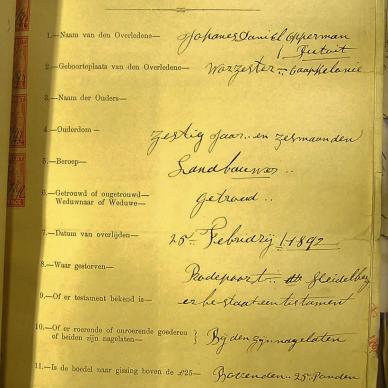 1.—Naam van den Overledene— Johanes Daniel Opperman
/ Dutoit
2.—Geboorteplaats van den Overledene— Worzester.. Caapkelonie
3.—Naam der Ouders—
4.—Ouderdom— Zestig Jaar.. en zesmaanden
5.—Beroep— Landbouwer..
6.—Getrouwd of ongetrouwd— getroud..
Weduwnaar of Weduwe—
7.—Datum van overlijden— 25 Februarij 1892
8.—Waar gestorven— Rodepoort.. Heidelberg
9.—Of er testament bekend is— er bestaat een testament
10.—Of er roerende of onroerende goederen
of beiden zijn nagelaten— } Bijden nagelaten
11.—Is de boedel naar gissing boven de £25— Bovenden.. 25 Ponden